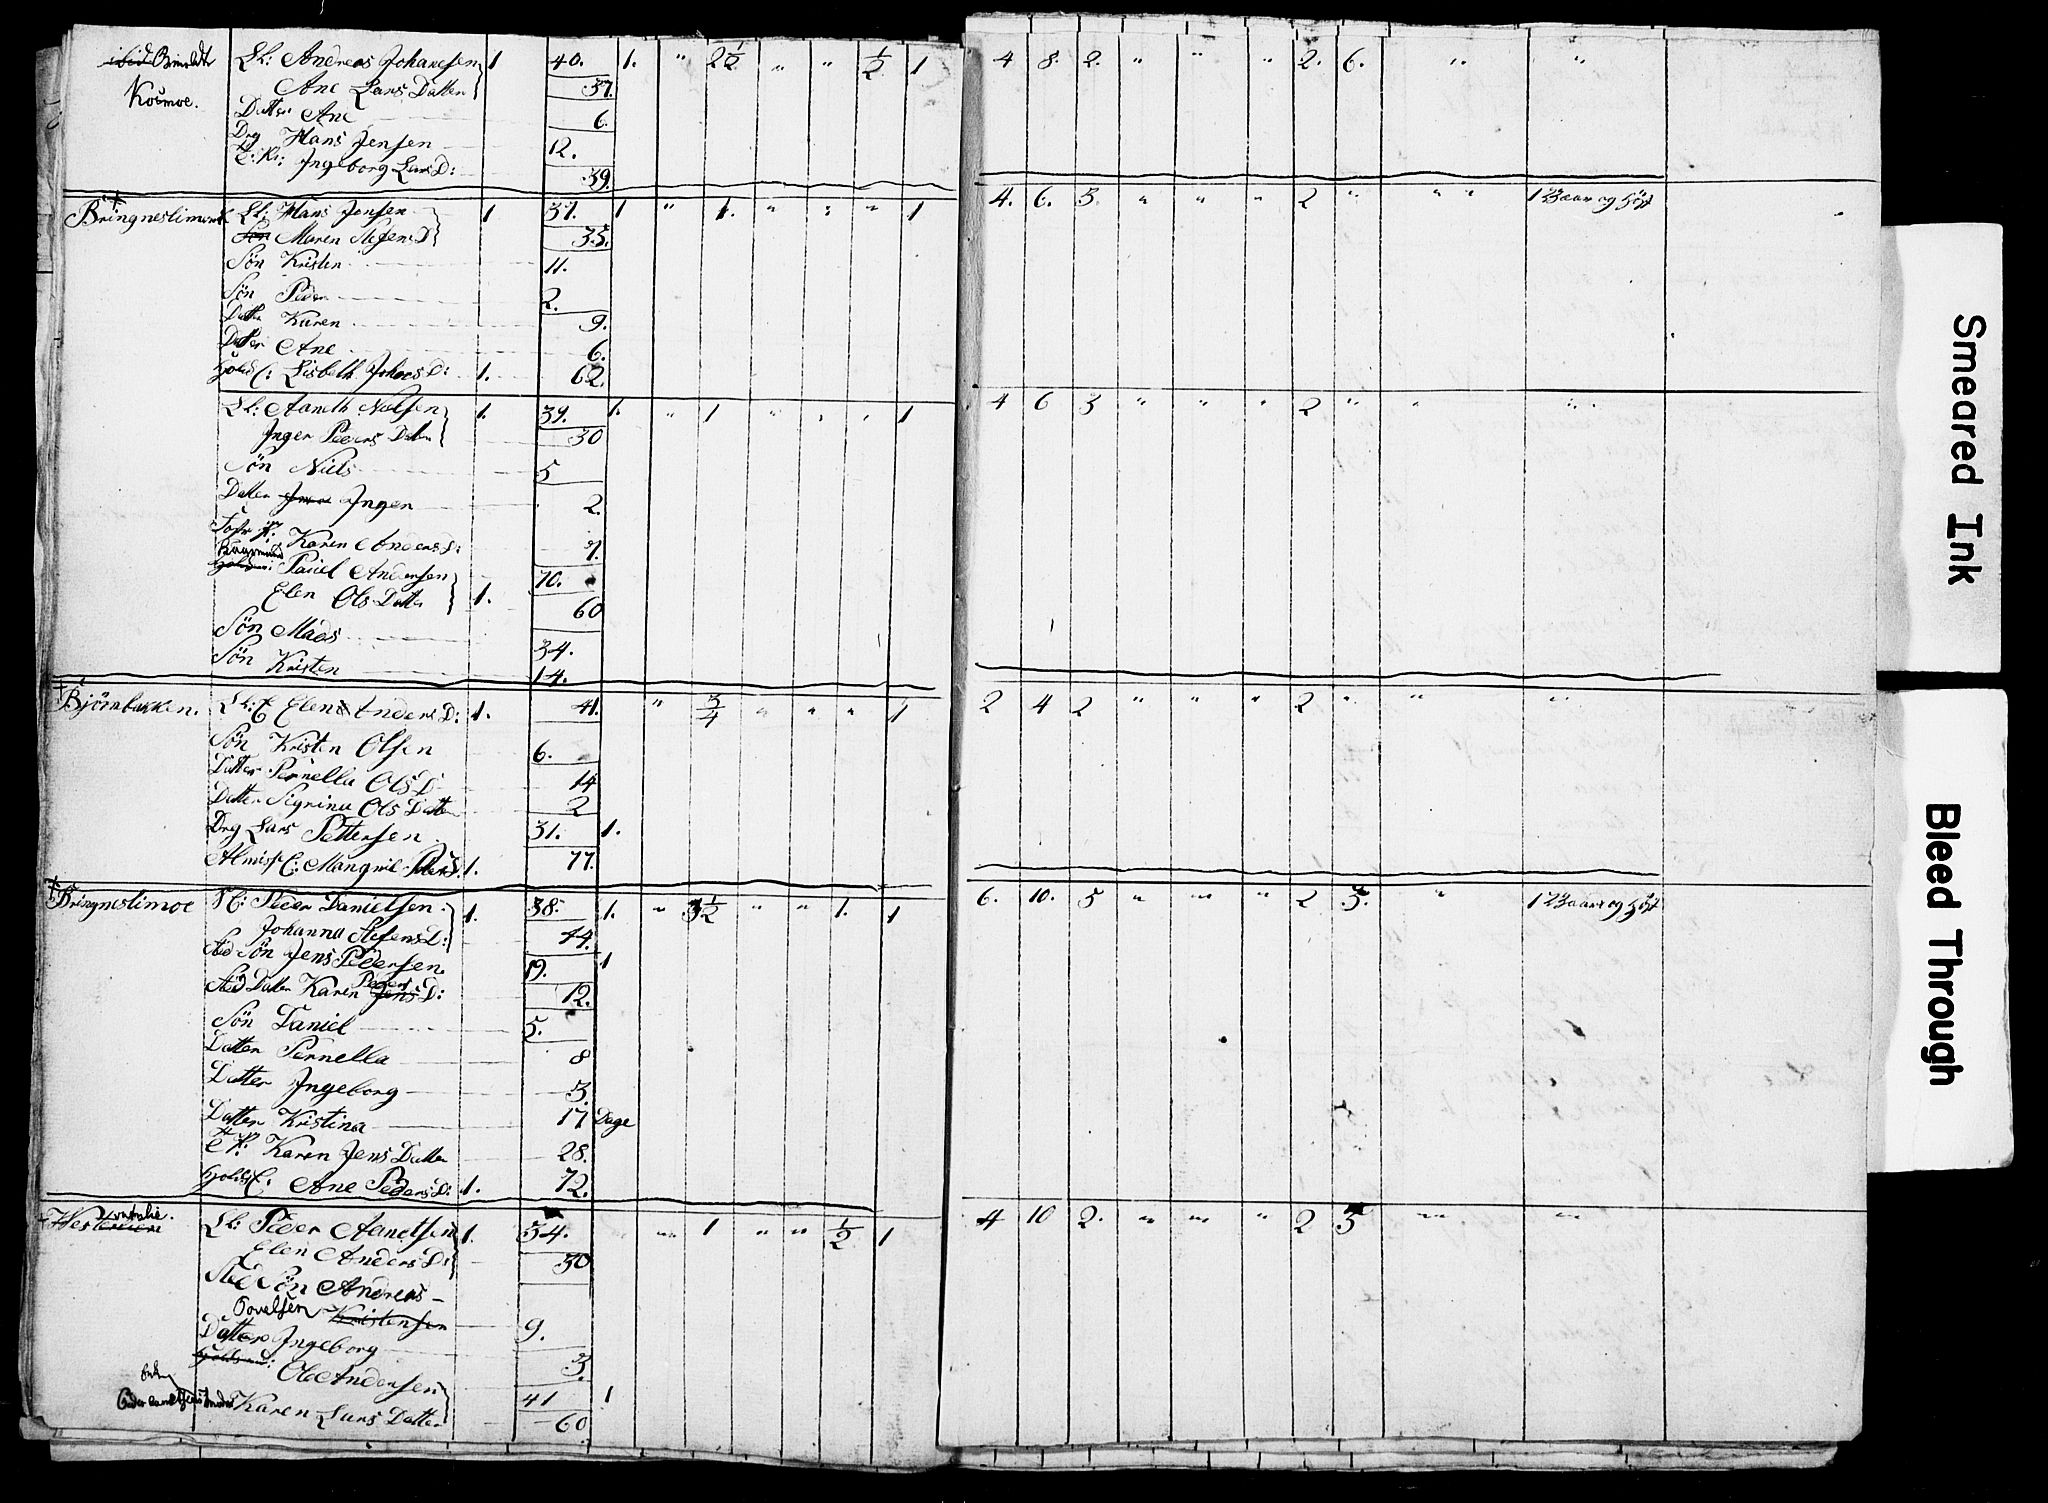 Lh: Andreas Johansen 1 40. 1. " 2½ " " ½ 1 4 8. 2. " " " 2. 6. " "
Kosmoe.
Ane Lars Datter 37.
Datter Ane 6.
Drg Hans Jensen 12.
Ingeborg Lars D: 39.
Bringneslimark Lh: Hans Jensen 1 37. 1 " 1. " " " 1 4. 6. 3. " " " 2 " " "
Maren D 35.
Søn Kristen 11.
Søn Peder 2.
Datter Karen 9.
Datter Ane 6.
Lisbeth Johns D: 1. 62.
Lh: Aaneth Nielsen 1. 39. 1. " 1 " " " 1 4 6 3 " " " 2 " " "
Inger Peders Datter 30
Søn Niels 5
Datter Inger 2.
Karen Anders D: 7.
Paul Andersen 70.
Elen Ols Datter 1. 60
Søn Mads 34.
Søn Kristen 14.
Bjørnbakken. Elen Anders D: 1. 41. " ¾ " " " 1 2 4 2 " " " 2 " " "
Søn Kristen Olsen 6.
Datter Pernella Ols D 14
Datter Sigrina Ols Datter 2
Drg Lars Pettersen 31. 1.
1. 77.
Bringneslimoe Peder Danielsen 1. 38. 1. " 3½ " " 1. 1 6. 10. 5 " " " 2 3. "
Johanna D: 44.
Sted Søn Jens Pedersen. 19. 1
Sted Datter Karen Peders Jens D: 12.
Søn Daniel 5.
Datter Pernella 8
Datter Ingeborg 3.
Datter Kristina 17 Dage
Karen Jens Datter 28.
Ane Peders D: 1. 72.
Lh: Peder Aanetsen 1. 34. " 1 " " ½ 1 4 10 2. " " " 2 3 " "
Elen Anders D: 30
Sted Søn Andreas
Kristensen 9.
Datter Ingeborg 3.
Ole Andersen 41 1
Karen Lars Datter 60
Smeared Ink
Bleed Through